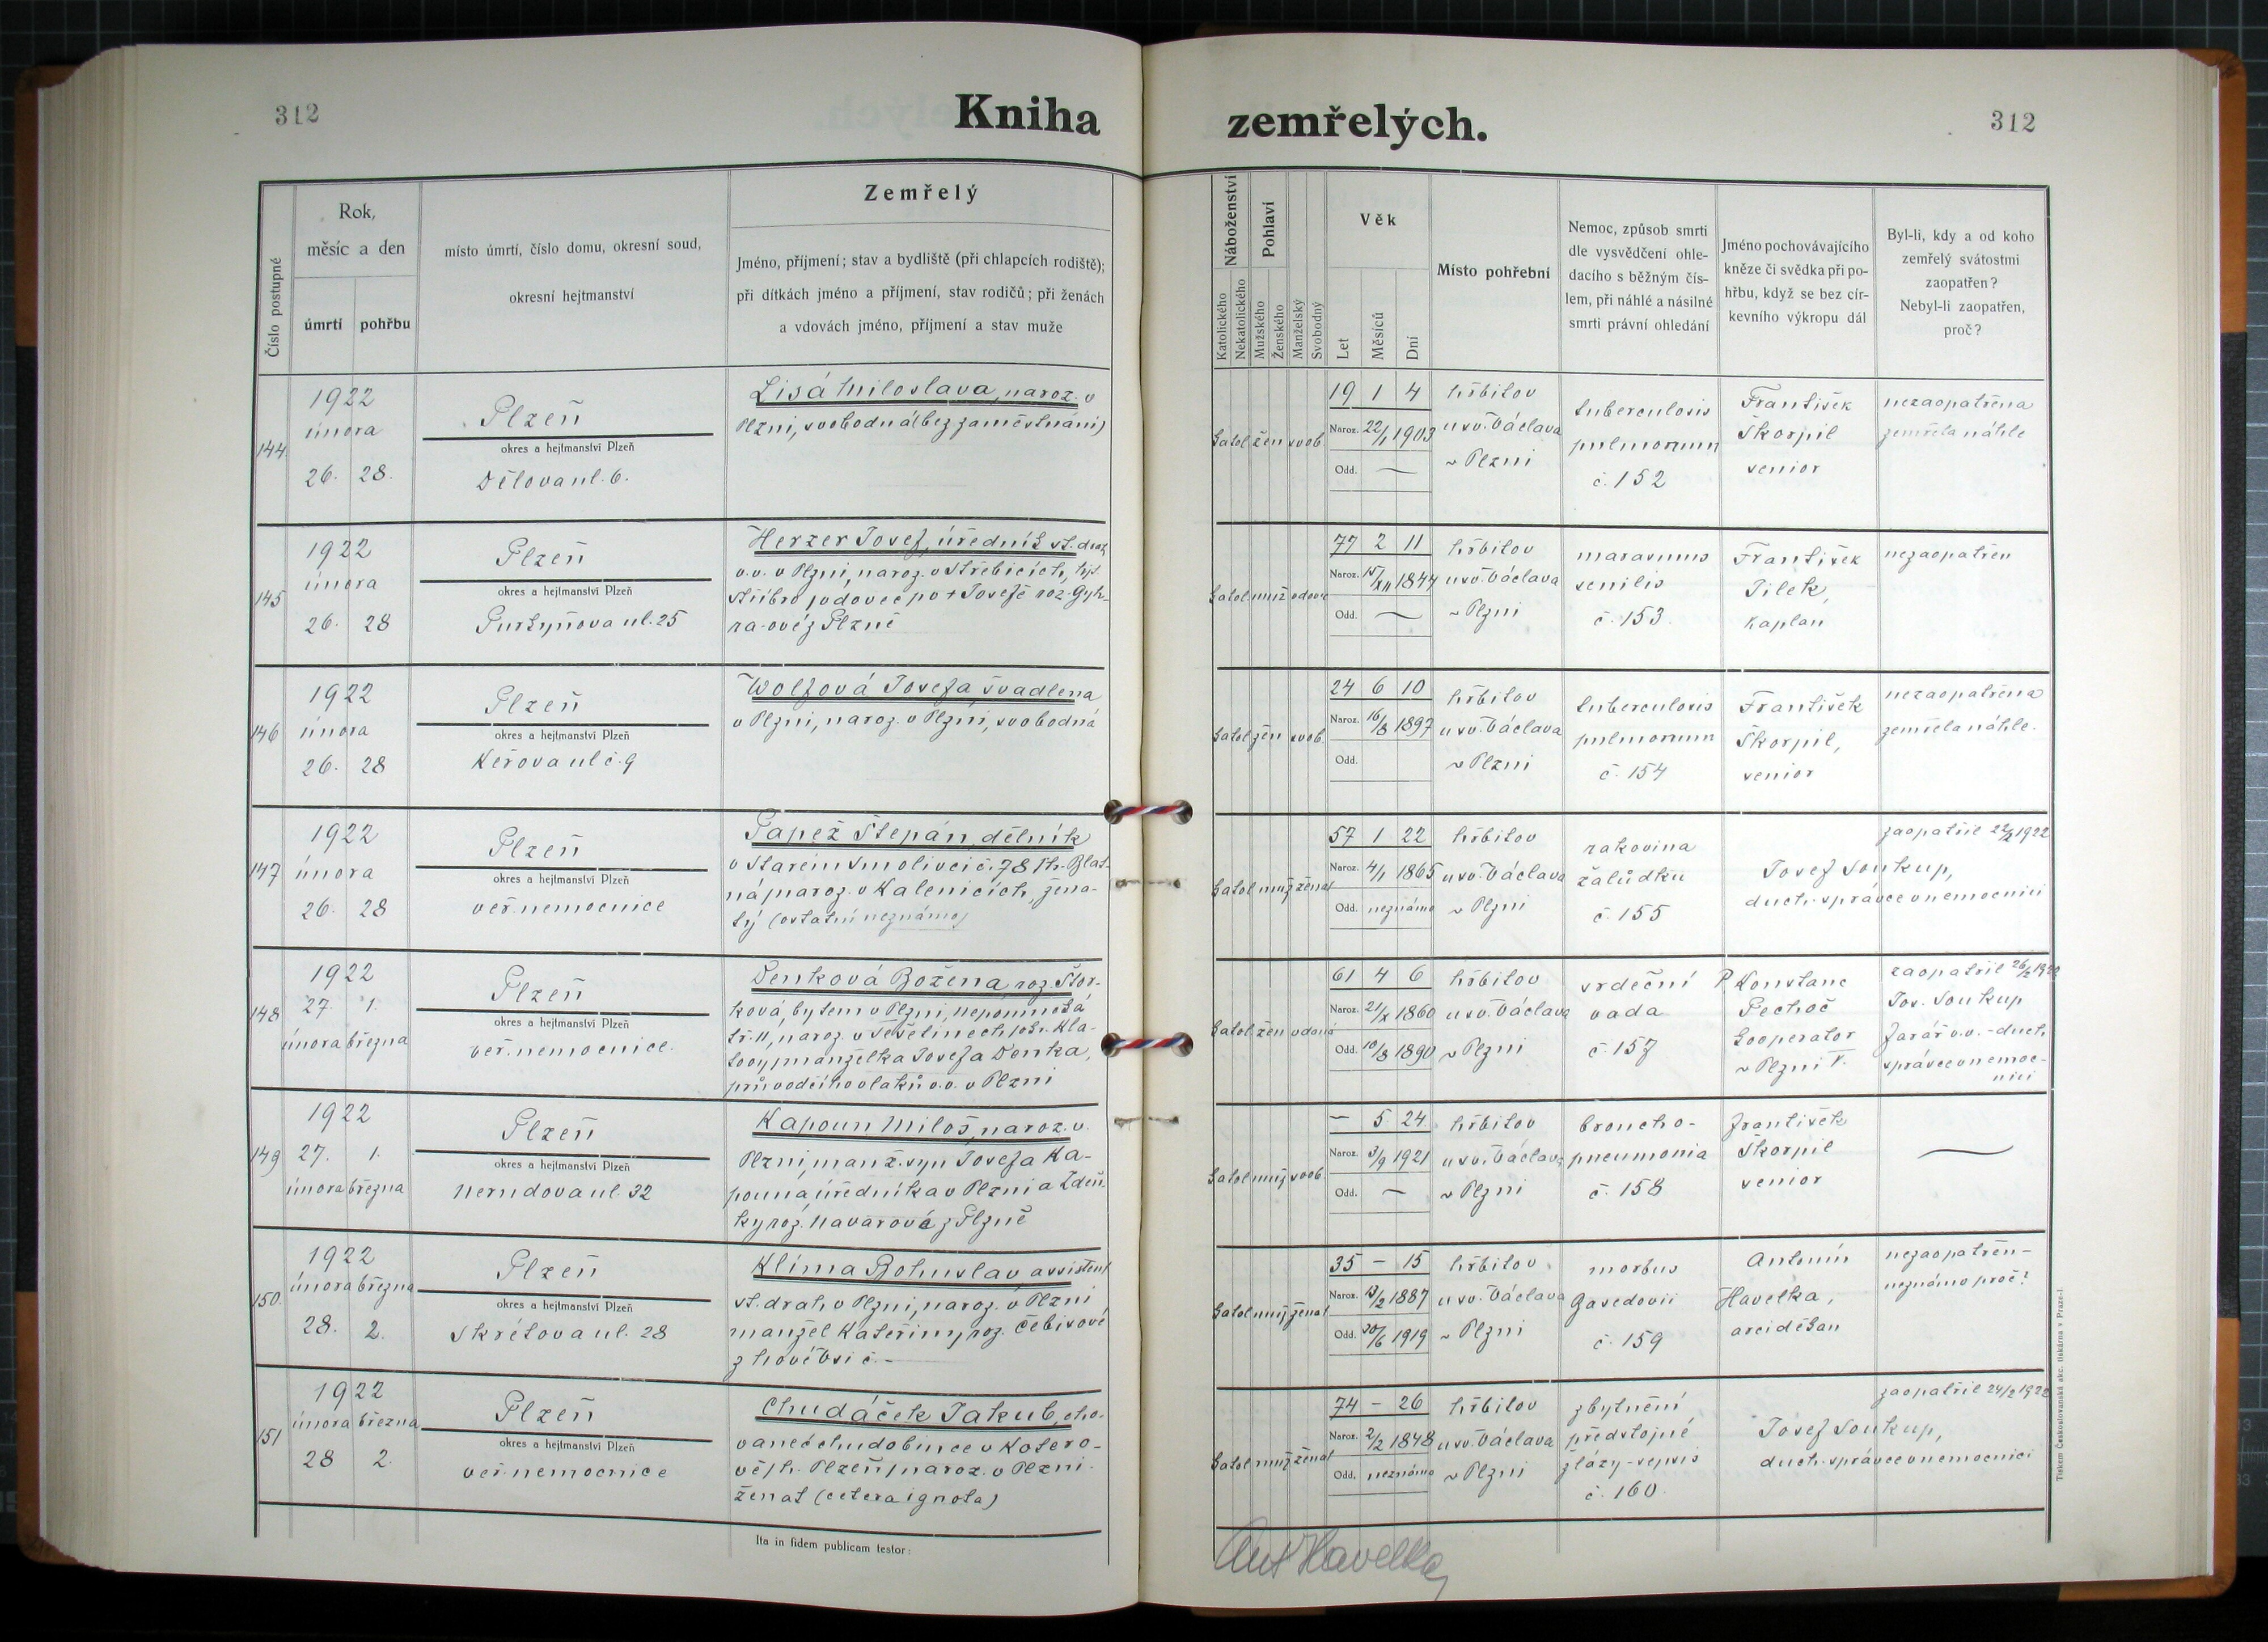 312
Kniha zemřelých.
312
Číslo postupné
Rok,
měsíc a den
úmrtí
pohřbu
místo úmrtí, číslo domu, okresní soud,
okresní hejtmanství
Zemřelý
Jméno, příjmení; stav a bydliště (při chlapcích rodiště);
při dítkách jméno a příjmení, stav rodičů; při ženách
a vdovách jméno, příjmení a stav muže
Náboženství
Katolického
Nekatolického
Pohlaví
Mužského
Ženského
Manželský
Svobodný
Věk
Let
Měsíců
Dní
Místo pohřební
Nemoc, způsob smrti
dle vysvědčení ohle-
dacího s běžným čís-
lem, při náhlé a násilné
smrti právní ohledání
Jméno pochovávajícího
kněze či svědka při po-
hřbu, když se bez cír-
kevního výkropu dál
Byl-li, kdy a od koho
zemřelý svátostmi
zaopatřen?
Nebyl-li zaopatřen,
proč?
144
1922
února
26. 28.
Plzeň
okres a hejtmanství Plzeň
Dělova ul. 6.
Lisá Miloslava, naroz. v
Plzni, svobodná (bez zaměstnání)
katol žen svob.
19 1 4
Naroz. 22/1 1903
Odd. —
hřbitov
u sv. Václava
v Plzni
tuberculosis
pulmorum
č. 152
František
Škorpil
senior
nezaopatřena
zemřela náhle
145
1922
února
26. 28
Plzeň
okres a hejtmanství Plzeň
Purkyňova ul. 25
Herzer Josef, úředník st. drah
v.v. v Plzni, naroz. v Střebicích, hjt.
Stříbro, vdovec po + Josefě roz. Gyh-
ra-ové z Plzně
katol muž vdovec
77 2 11
Naroz. 15/XII 1844
Odd. —
hřbitov
u sv. Václava
v Plzni
marasmus
senilis
č. 153
František
Jílek,
kaplan
nezaopatřen
146
1922
února
26. 28
Plzeň
okres a hejtmanství Plzeň
Keřova ul č. 9
Wolfová Josefa švadlena
v Plzni, naroz. v Plzni, svobodná
katol žen svob.
24 6 10
Naroz. 16/8 1897
Odd.
hřbitov
u sv. Václava
v Plzni
tuberculosis
pulmorum
č. 154
František
Škorpil,
senior
nezaopatřena
zemřela náhle.
147
1922
února
26. 28
Plzeň
okres a hejtmanství Plzeň
veř. nemocnice
Papež Štěpán, dělník
v Starém Smolivci č. 78 /kr. Blat-
ná/ naroz. v Kalenicích, žena-
tý (ostatní neznámo)
katol muž ženat
57 1 22
Naroz. 4/1 1865
Odd. neznámo
hřbitov
u sv. Václava
v Plzni
rakovina
žalůdku
č. 155
zaopatřil 22/2 1922
Josef Soukup,
duch. správce v nemocnici
148
1922
27. 1.
února března
Plzeň
okres a hejtmanství Plzeň
veř. nemocnice.
Denková Božena, roz. Štor-
ková, bytem v Plzni, Nepomucká
tř. 11, naroz. v Těšetinech, okr. Kla-
tovy, manželka Josefa Denka,
průvodčího vlaků v.v. v Plzni
katol žen vdaná
61 4 6
Naroz. 21/X 1860
Odd. 10/8 1890
hřbitov
u sv. Václava
v Plzni
srdeční
vada
č. 157
P. Konstanc
Pechoč
kooperator
v Plzni V.
zaopatřil 26/2 1922
Jos. Soukup
farář v.v. - duch.
správce v nemoc-
nici
149
1922
27. 1.
února března
Plzeň
okres a hejtmanství Plzeň
Nerudova ul. 32
Kapoun Miloš, naroz. v
Plzni, manž. syn Josefa Ka-
pouna úředníka v Plzni a Zdeň-
ky roz. Navarové z Plzně
katol muž svob.
— 5 24
Naroz. 3/9 1921
Odd. —
hřbitov
u sv. Václava
v Plzni
broncho-
pneumonia
č. 158
František
Škorpil
senior
—
150.
1922
února března
28. 2.
Plzeň
okres a hejtmanství Plzeň
Skrétova ul. 28
Klíma Bohuslav assistent
st. drah, v Plzni, naroz. v Plzni
manžel Kateřiny, roz. Čebisové
z Nové Vsi č. -
katol muž ženat
35 — 15
Naroz. 13/2 1887
Odd. 30/6 1919
hřbitov
u sv. Václava
v Plzni
morbus
Basedovii
č. 159
Antonín
Havelka,
arciděkan
nezaopatřen -
neznámo proč?
151
1922
února března
28 2.
Plzeň
okres a hejtmanství Plzeň
veř. nemocnice
Chudáček Jakub, cho-
vanec chudobince v Kotero-
vě /h. Plzeň/ naroz. v Plzni.
ženat (cetera ignota)
katol muž ženat
74 — 26
Naroz. 2/2 1848
Odd. neznámo
hřbitov
u sv. Václava
v Plzni
zbytnění
předstojné
žlázy - sepsis
č. 160.
zaopatřil 24/2 1922
Josef Soukup,
duch. správce v nemocnici
Ita in fidem publicam testor:
Ant Havelka
Tiskem Československá akc. tiskárna v Praze-I.